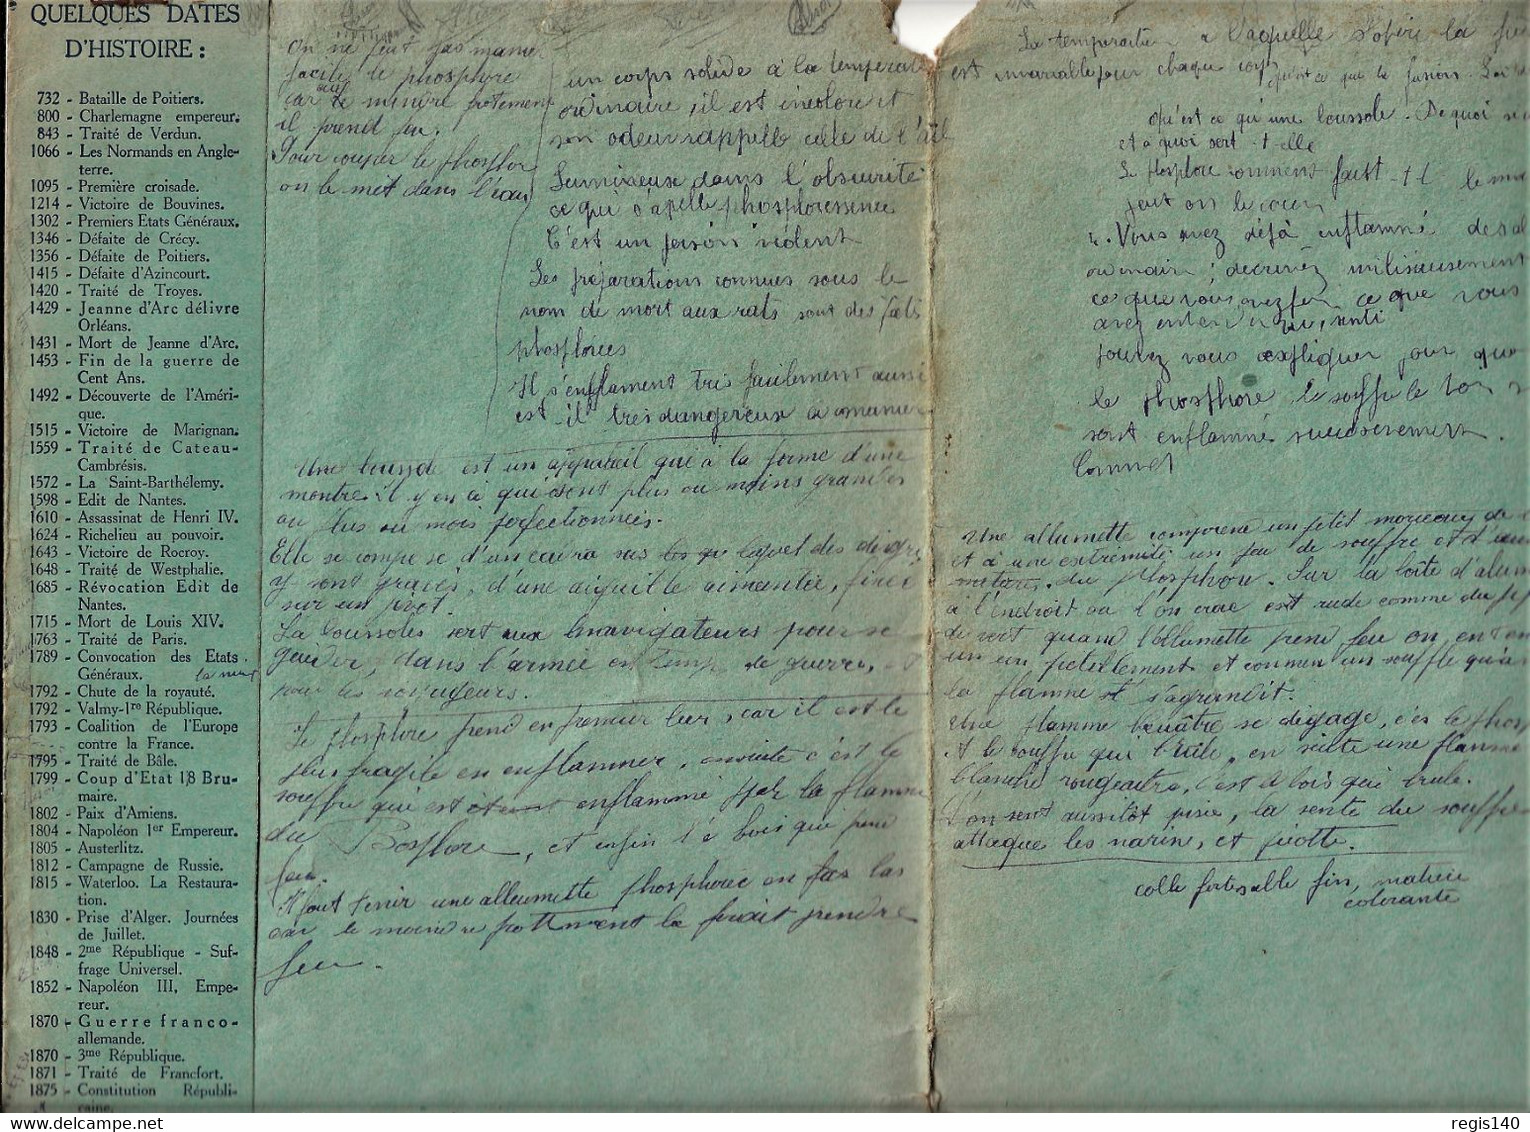 QUELQUES DATES
D'HISTOIRE :
732 - Bataille de Poitiers.
800 - Charlemagne empereur.
843 - Traité de Verdun.
1066 - Les Normands en Angle-
terre.
1095 - Première croisade.
1214 - Victoire de Bouvines.
1302 - Premiers Etats Généraux.
1346 - Défaite de Crécy.
1356 - Défaite de Poitiers.
1415 - Défaite d'Azincourt.
1420 - Traité de Troyes.
1429 - Jeanne d'Arc délivre
Orléans.
1431 - Mort de Jeanne d'Arc.
1453 - Fin de la guerre de
Cent Ans.
1492 - Découverte de l'Améri-
que.
1515 - Victoire de Marignan.
1559 - Traité de Cateau-
Cambrésis.
1572 - La Saint-Barthélemy.
1598 - Edit de Nantes.
1610 - Assassinat de Henri IV.
1624 - Richelieu au pouvoir.
1643 - Victoire de Rocroy.
1648 - Traité de Westphalie.
1685 - Révocation Edit de
Nantes.
1715 - Mort de Louis XIV.
1763 - Traité de Paris.
1789 - Convocation des Etats
Généraux.
1792 - Chute de la royauté.
1792 - Valmy-1re République.
1793 - Coalition de l'Europe
contre la France.
1795 - Traité de Bâle.
1799 - Coup d'Etat 18 Bru-
maire.
1802 - Paix d'Amiens.
1804 - Napoléon 1er Empereur.
1805 - Austerlitz.
1812 - Campagne de Russie.
1815 - Waterloo. La Restaura-
tion.
1830 - Prise d'Alger. Journées
de Juillet.
1848 - 2me République - Suf-
frage Universel.
1852 - Napoléon III, Empe-
reur.
1870 - Guerre franco-
allemande.
1870 - 3me République.
1871 - Traité de Francfort.
1875 - Constitution Républi-
caine.
On ne peut pas manie
facile le phosphore
car le mindre frotement
il prend feu.
Pour couper le phosphor
on le met dans l'eau
un corps solide à la temperat
ordinaire, il est incolore et
son odeur rappelle celle de l'ail
Lumineux dans l'obscurité
ce qui s'apelle phosphoressence
C'est un poison violent
Les préparations connues sous le
nom de mort aux rats sont des pâtes
phosforées
Il s'enflament très facilement aussi
est-il très dangereux à manier
Une boussole est un appareil qui à la forme d'une
montre il y en a qui sont plus ou moins grandes
ou plus ou mois perfectionnées.
Elle se compose d'un cadra sus lequel des degrés
y sont gravés, d'une aiguille aimantée, fixée
sur un pivot.
La boussoles sert aux navigateurs pour se
guider, dans l'armée en temp de guerre, et
pour les voyageurs.
Le phosphore prend en premier lieu, car il est le
plus fragile en enflammer, ensuite c'est le
souffre qui est enflammé par la flamme
du Bosflore, et enfin le bois qui prend
feu.
Il faut tenir une allumette phosphoree en pas las
car le moindre frottement la ferait prendre
feu.
La temperature a laquelle s'opère la fu
est invariable pour chaque corp qu'est ce que la fusion. La
Qu'est ce qu'une boussole. De quoi se
et a quoi sert-t-elle
Le Phosphore comment faut-il le ma
peut on le couper
4. Vous avez déjà enflammé des al
ordinaire; décrivez minitieusement
ce que vous avez fai ce que vous
avez entendu vu, senti
Pouvez vous expliquer pour quoi
le phosphore, le souffre le bois
sont enflammé successivement.
Comment
Une allumette comprend un petit morceau de
et à une extrémité un peu de souffre et d'une
matière. du Phosphore. Sur la boîte d'alum
à l'endroit ou l'on crase est rude comme du pap
de vert quand l'allumette prend feu on entend
un un petillement et comme un souffle qui
la flamme s'agrandit.
Une flamme bleuâtre se dégage, c'es le phos
et le souffre qui brûle, en suite une flamme
blanche rougeatre, c'est le bois qui brule.
L'on sent aussitôt la sente du souffre
attaque les narine, et picotte.
colle forte sable fin, matière
colorante
regis140